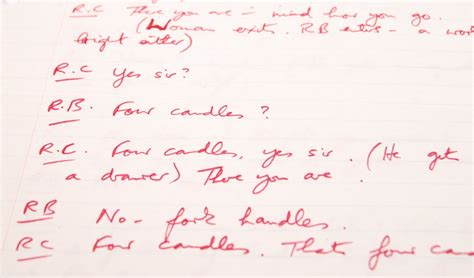 R.C There you are – mind how you go.
(Woman exits. RB enters – a
bright either)
R.C Yes sir?
R.B. Four candles?
R.C. Four candles, yes sir. (He gets
a drawer) There you are.
RB No – fork handles.
RC Four candles. That's four